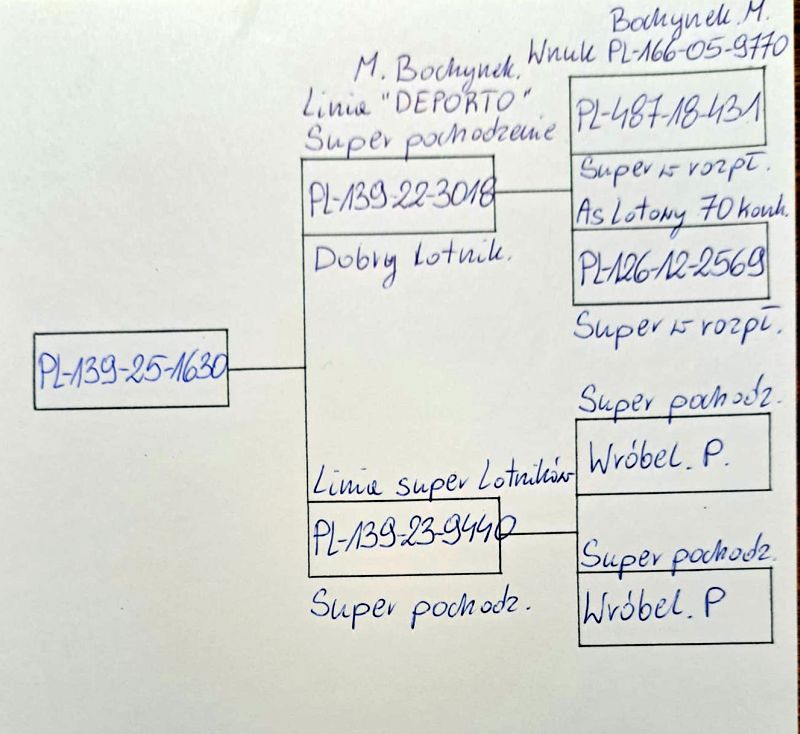 Bochynek. M.
Wnuk PL-166-05-9770
M. Bochynek.
Linia "DEPORTO"
Super pochodzenie
PL-487-18-431
PL-139-22-3018
Super w rozpł.
As Lotowy 70 konk.
Dobry Lotnik.
PL-126-12-2569
Super w rozpł.
PL-139-25-1630
Super pochodz.
Wróbel. P.
Linia super Lotników
PL-139-23-9440
Super pochodz.
Super pochodz.
Wróbel. P